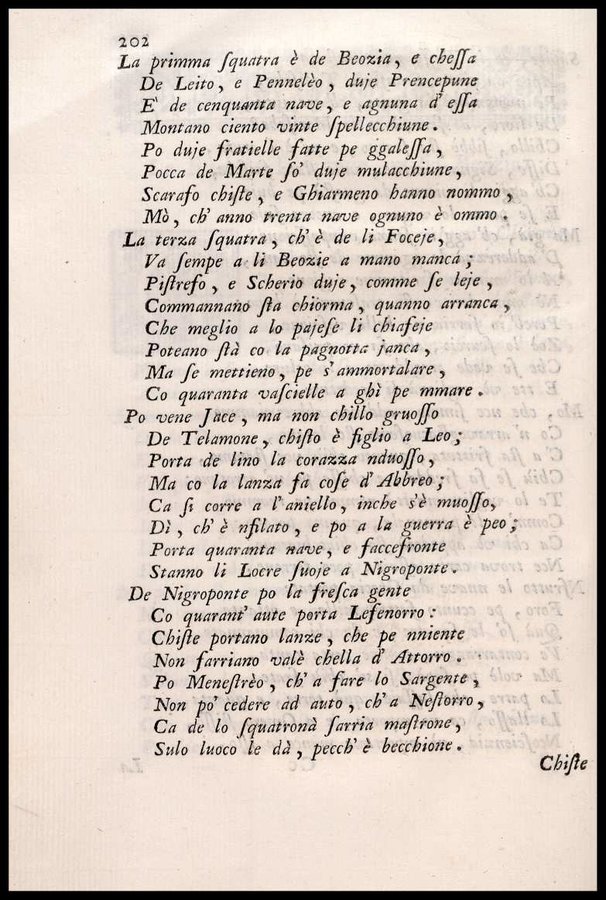 202
La primma ſquatra è de Beozia, e cheſſa
De Leito, e Pennelèo, duje Prencepune
E' de cenquanta nave, e agnuna d'eſſa
Montano ciento vinte ſpellecchiune.
Po duje fratielle fatte pe ggaleſſa,
Pocca de Marte ſo' duje mulacchiune,
Scarafo chiſte, e Ghiarmeno hanno nommo,
Mò, ch'anno trenta nave ognuno è ommo.
La terza ſquatra, ch'è de li Foceje,
Va ſempe a li Beozie a mano manca;
Piſtrefo, e Scherio duje, comme ſe leje,
Commannano ſta chiorma, quanno arranca,
Che meglio a lo pajeſe li chiafeje
Poteano ſtà co la pagnotta janca,
Ma ſe mettieno, pe s'ammortalare,
Co quaranta vaſcielle a ghì pe mmare.
Po vene Jace, ma non chillo gruoſſo
De Telamone, chiſto è figlio a Leo;
Porta de lino la corazza nduoſſo,
Ma co la lanza fa coſe d'Abbreo;
Ca ſi corre a l'aniello, inche s'è muoſſo,
Dì, ch'è nfilato, e po a la guerra è peo;
Porta quaranta nave, e faccefronte
Stanno li Locre ſuoje a Nigroponte.
De Nigroponte po la freſca gente
Co quarant'aute porta Lefenorro:
Chiſte portano lanze, che pe nniente
Non farriano valè chella d'Attorro.
Po Meneſtrèo, ch'a fare lo Sargente,
Non po' cedere ad auto, ch'a Neſtorro,
Ca de lo ſquatronà ſarria maſtrone,
Sulo luoco le dà, pecch'è becchione.
Chiſte